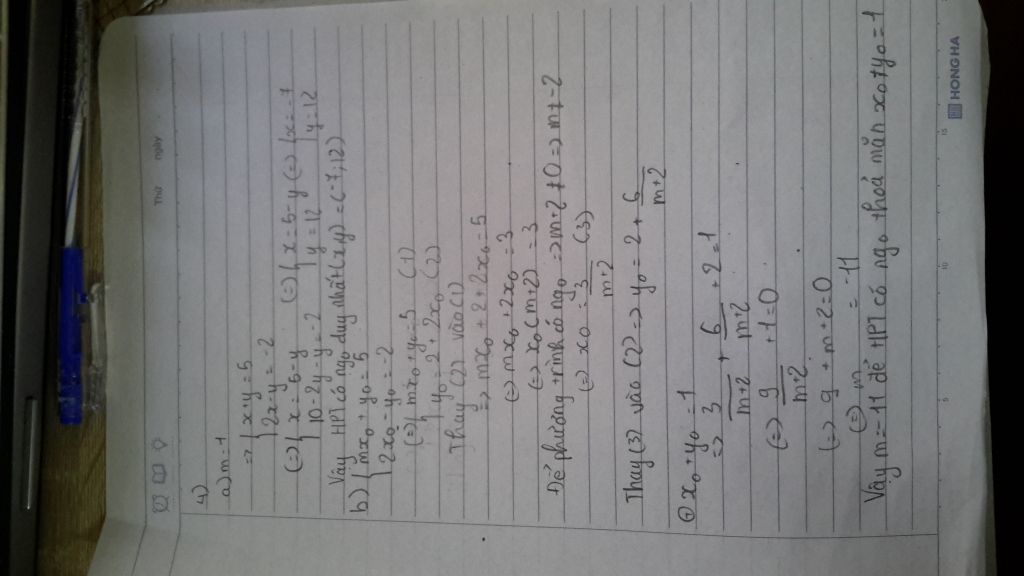 Thứ ngày
4)
a) m=1
=> { x+y=5
2x-y=-2
(=) { x=5-y (=) { x=5-y (=) { x=-7
10-2y-y=-2 y=12 y=12
Vậy HPT có ngo duy nhất (x,y)=(-7,12)
b) { mx₀+y₀=5
2x₀-y₀=-2
(=) { mx₀+y₀=5 (1)
y₀=2+2x₀ (2)
Thay (2) vào (1)
=> mx₀+2+2x₀=5
(=) mx₀+2x₀=3
(=) x₀(m+2)=3
Để phương trình có ngo => m+2≠0 => m≠-2
(=) x₀=3/(m+2) (3)
Thay (3) vào (2) => y₀=2+6/(m+2)
⊕ x₀+y₀=1
=> 3/(m+2) + 6/(m+2) +2=1
(=) 9/(m+2) +1=0
(=) 9+m+2=0
(=) m =-11
Vậy m=-11 để HPT có ngo thoả mãn x₀+y₀=1
5 10 15
HONG HA